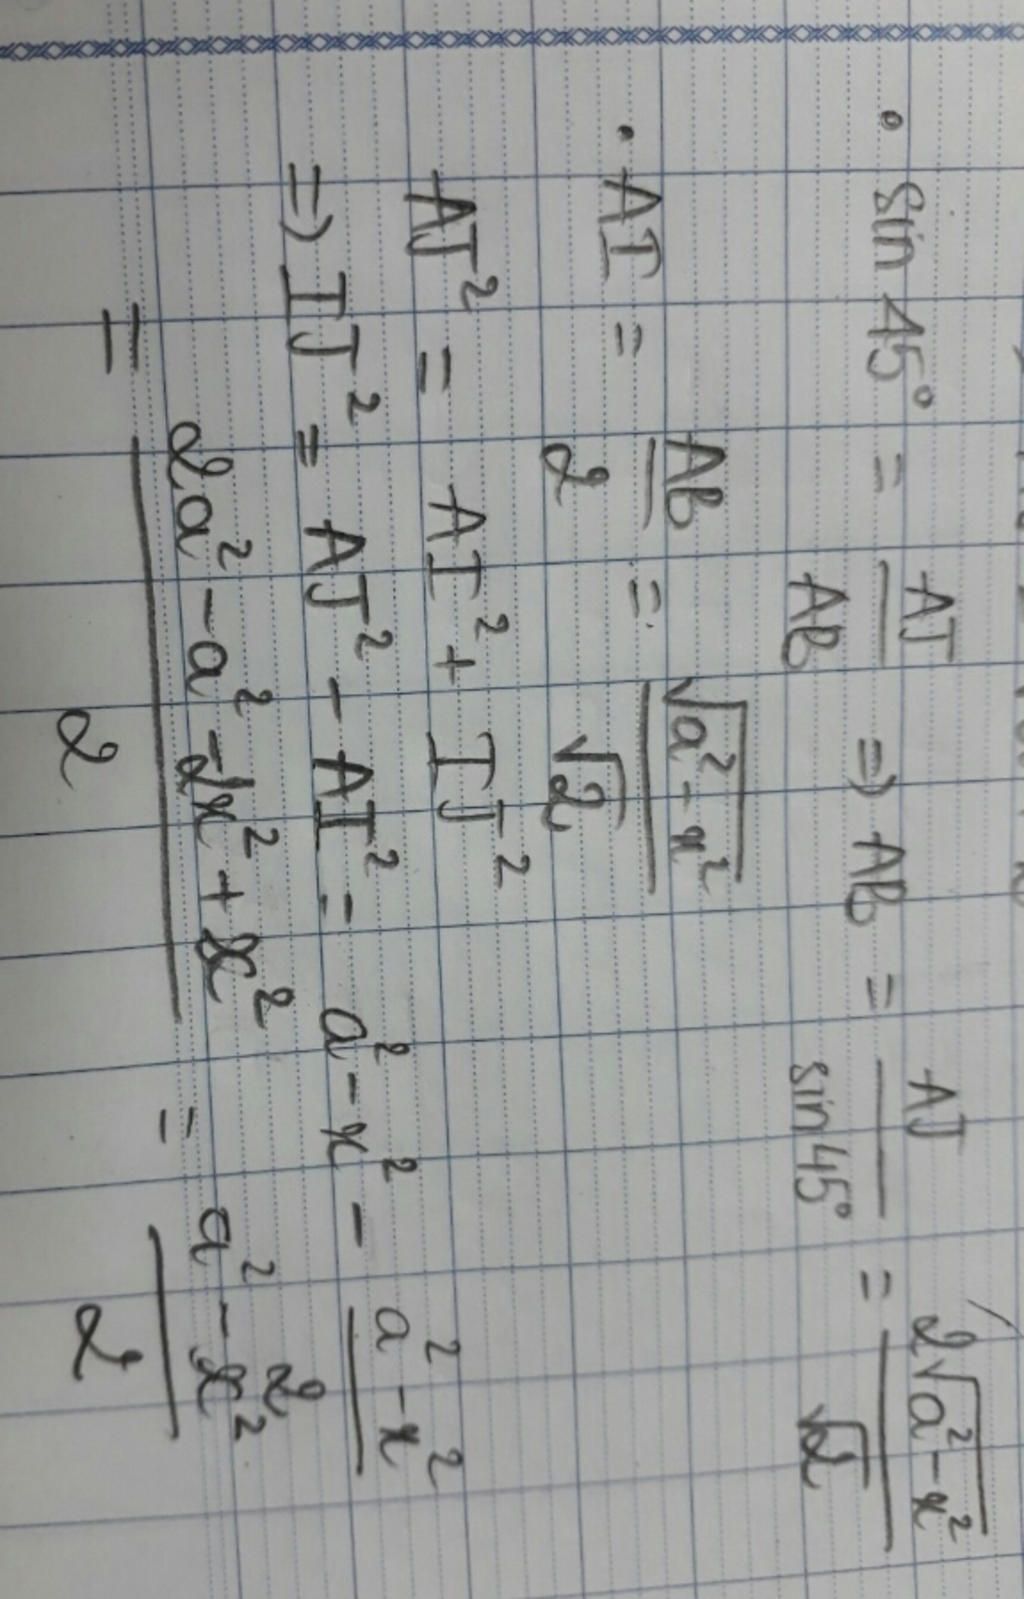 • sin 45° = AJ/AB => AB = AJ/sin45° = 2√(a² - x²)/√2
• AI = AB/2 = √(a² - x²)/√2
AJ² = AI² + IJ²
=> IJ² = AJ² - AI² = a² - x² - (a² - x²)/2
= (2a² - a² - 2x² + x²)/2 = (a² - x²)/2